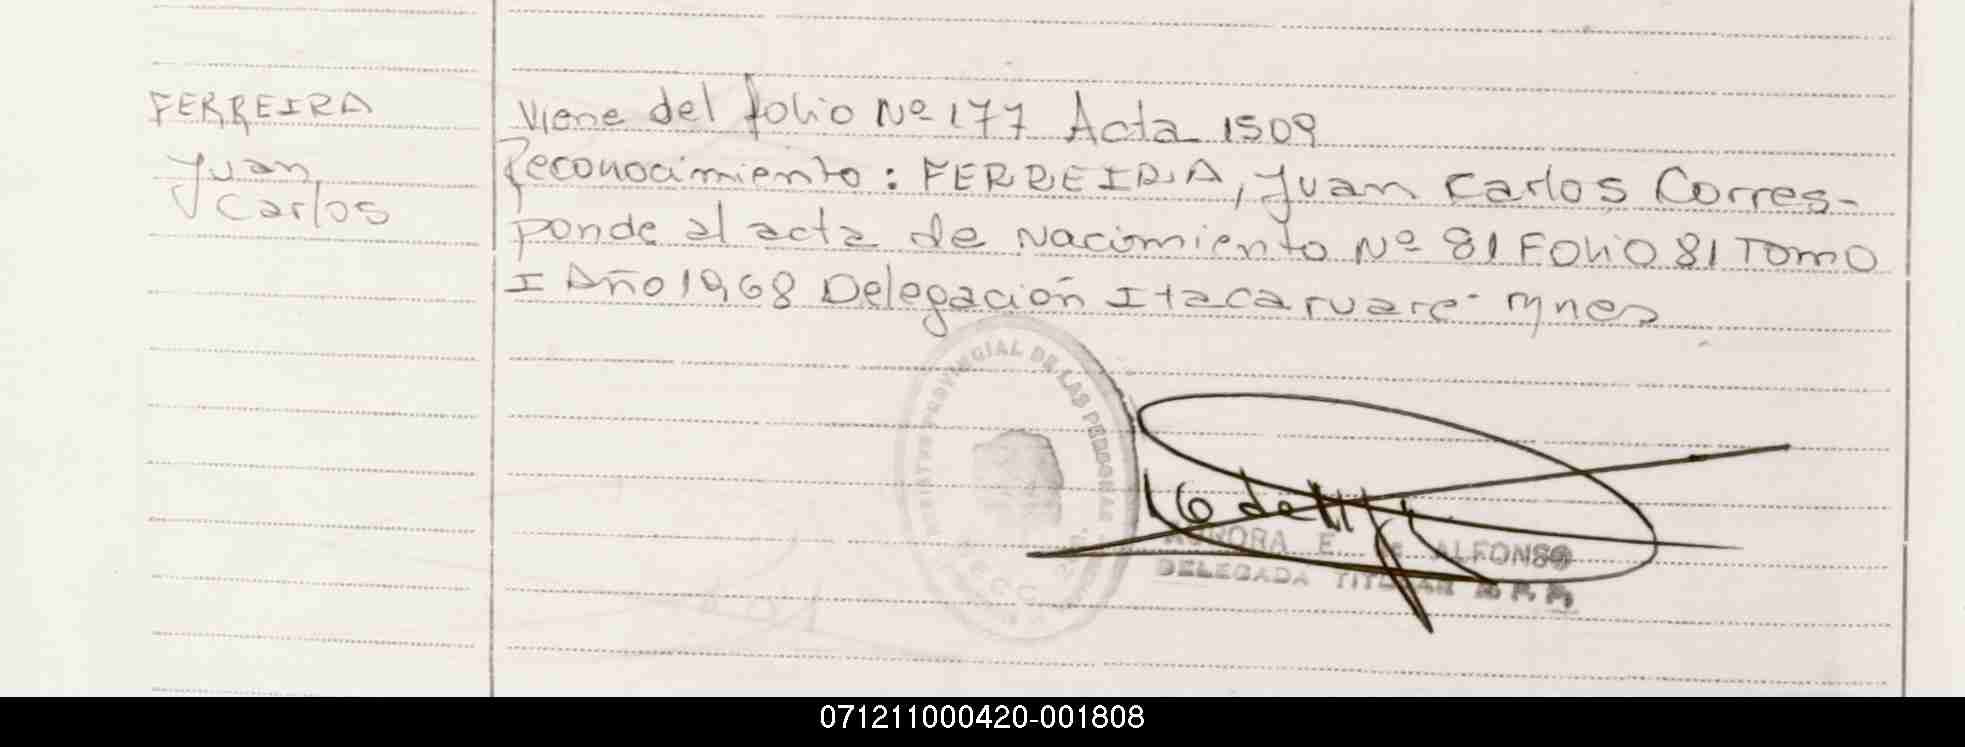 FERREIRA
Juan
Carlos
Viene del folio Nº 177 Acta 1509
Reconocimiento: FERREIRA, Juan Carlos Corres-
ponde al acta de Nacimiento Nº 81 Folio 81 Tomo
I Año 1968 Delegación Itacaruare - Mnes
PROVINCIAL DE LAS PERSONAS
E. de ALFONSO
DELEGADA TITULAR R. P. P.
071211000420-001808